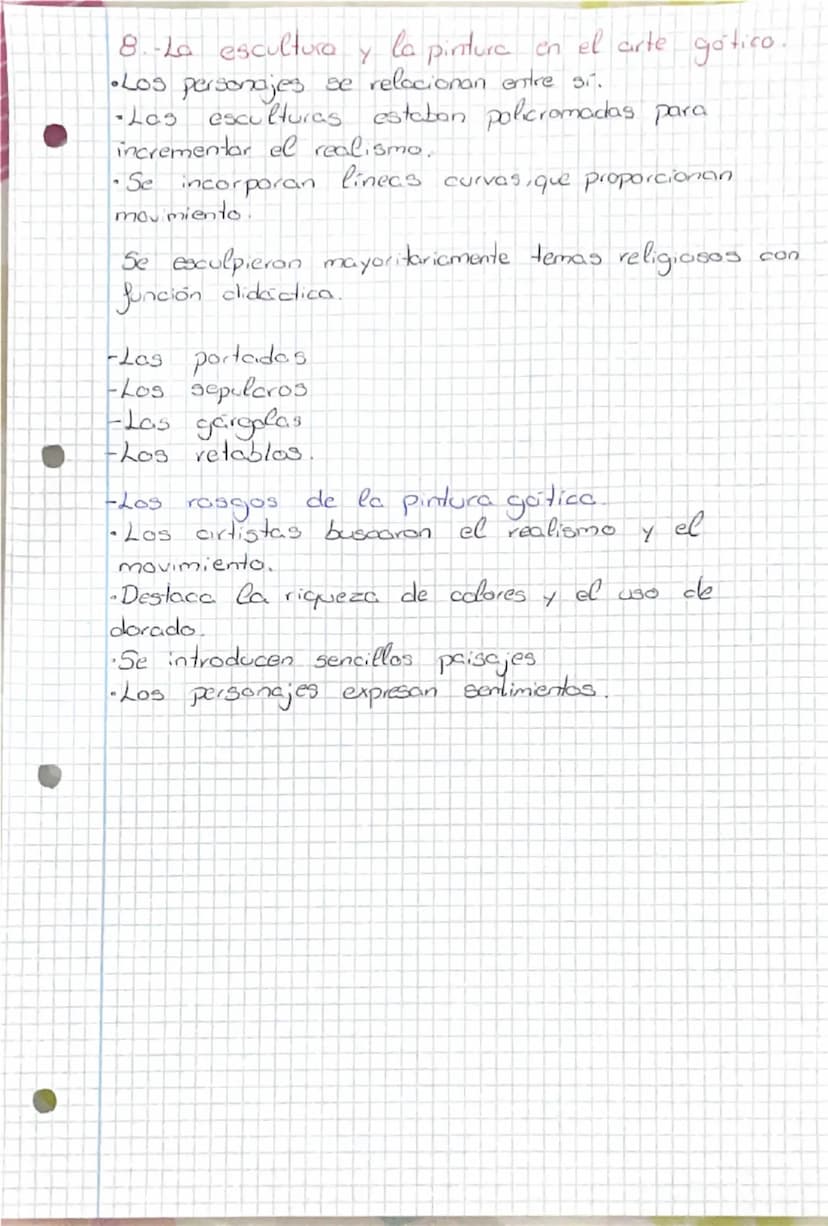 8.-La escultura y la pintura en el arte gótico.
•Los personajes se relacionan entre sí.
•Las esculturas estaban policromadas para
incrementar el realismo.
•Se incorporan líneas curvas, que proporcionan
movimiento.
Se esculpieron mayoritariamente temas religiosos con
función didáctica.
-Las portadas
-Los sepulcros
-Las gárgolas
-Los retablos.
-Los rasgos de la pintura gótica.
•Los artistas buscaron el realismo y el
movimiento.
•Destaca la riqueza de colores y el uso de
dorado.
•Se introducen sencillos paisajes
•Los personajes expresan sentimientos.